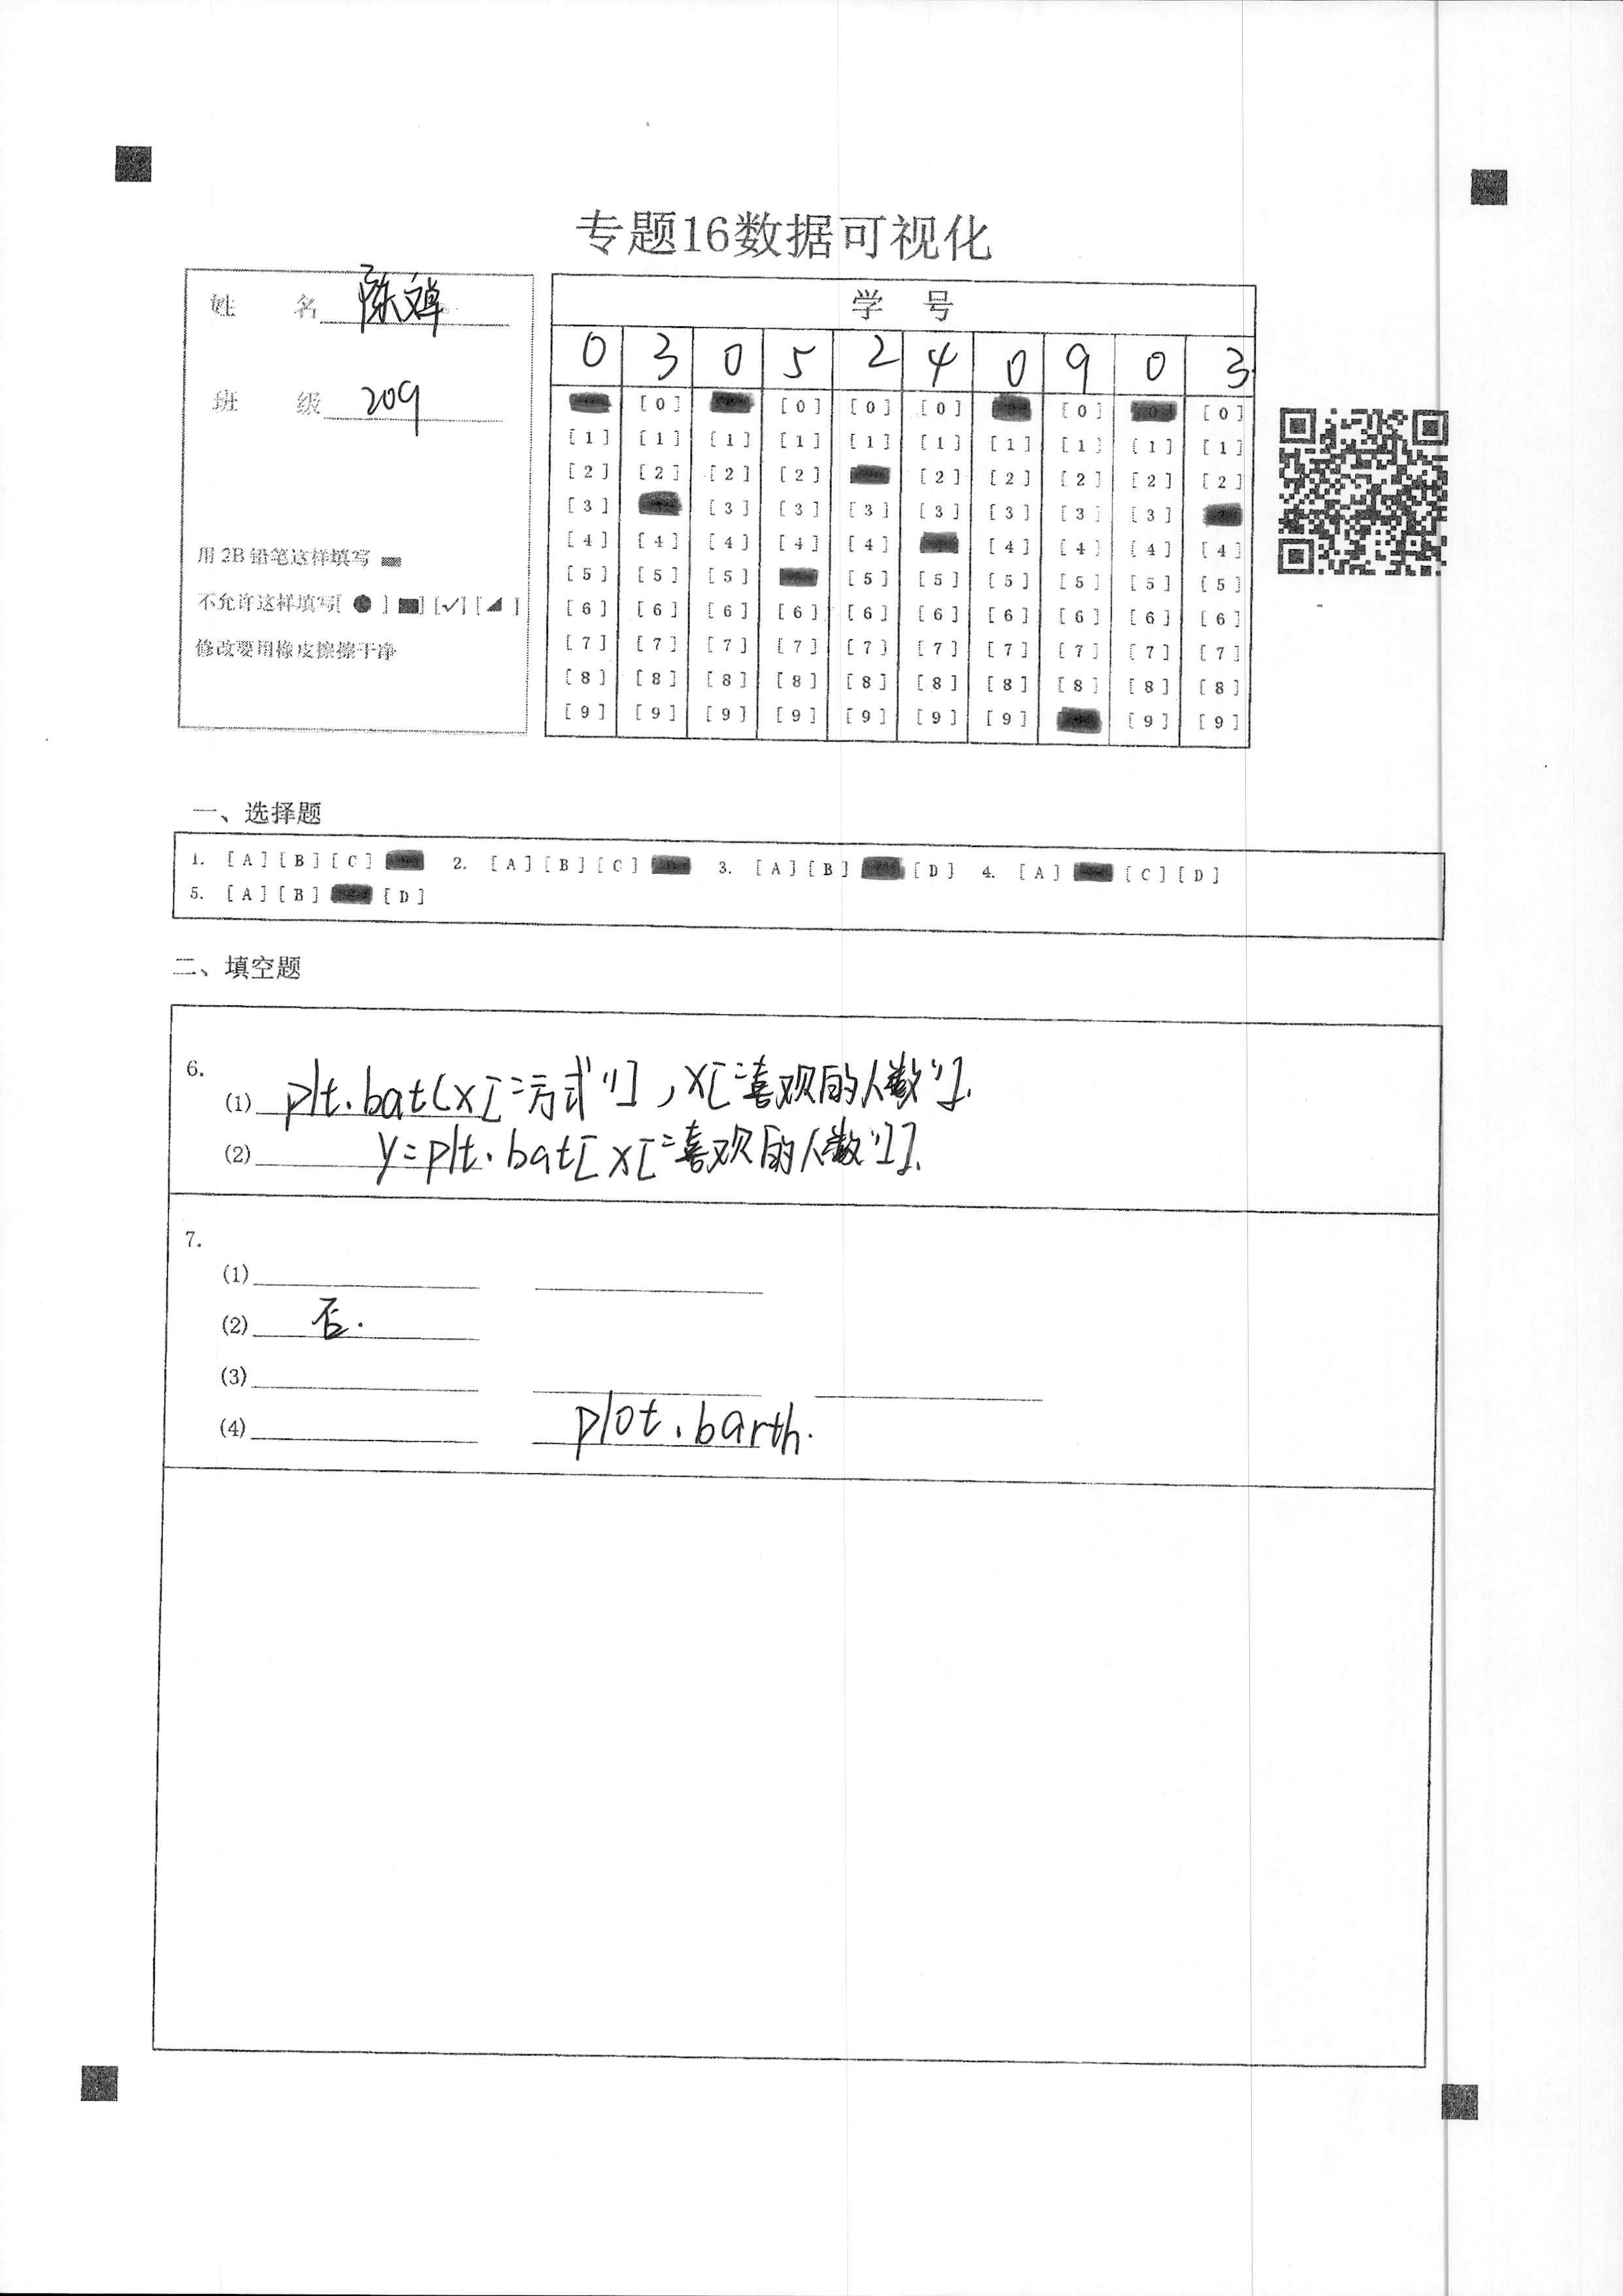 专题16数据可视化
姓 名 陈文婵
班 级 209
用 2B 铅笔这样填写
不允许这样填写[ ● ] ■] [✓] [◢ ]
修改要用橡皮擦擦干净
学 号
0 3 0 5 2 4 0 9 0 3
[0] [0] [0] [0] [0] [0]
[1] [1] [1] [1] [1] [1] [1] [1] [1] [1]
[2] [2] [2] [2] [2] [2] [2] [2] [2]
[3] [3] [3] [3] [3] [3] [3] [3]
[4] [4] [4] [4] [4] [4] [4] [4] [4]
[5] [5] [5] [5] [5] [5] [5] [5] [5]
[6] [6] [6] [6] [6] [6] [6] [6] [6] [6]
[7] [7] [7] [7] [7] [7] [7] [7] [7] [7]
[8] [8] [8] [8] [8] [8] [8] [8] [8] [8]
[9] [9] [9] [9] [9] [9] [9] [9] [9]
一、选择题
1. [A] [B] [C] 2. [A] [B] [C] 3. [A] [B] [D] 4. [A] [C] [D]
5. [A] [B] [D]
二、填空题
6.
(1) plt.bat(x["方式"],x["喜欢的人数"].
(2) y=plt.bat[x["喜欢的人数"]].
7.
(1)
(2) 否.
(3)
(4) plot.barth.